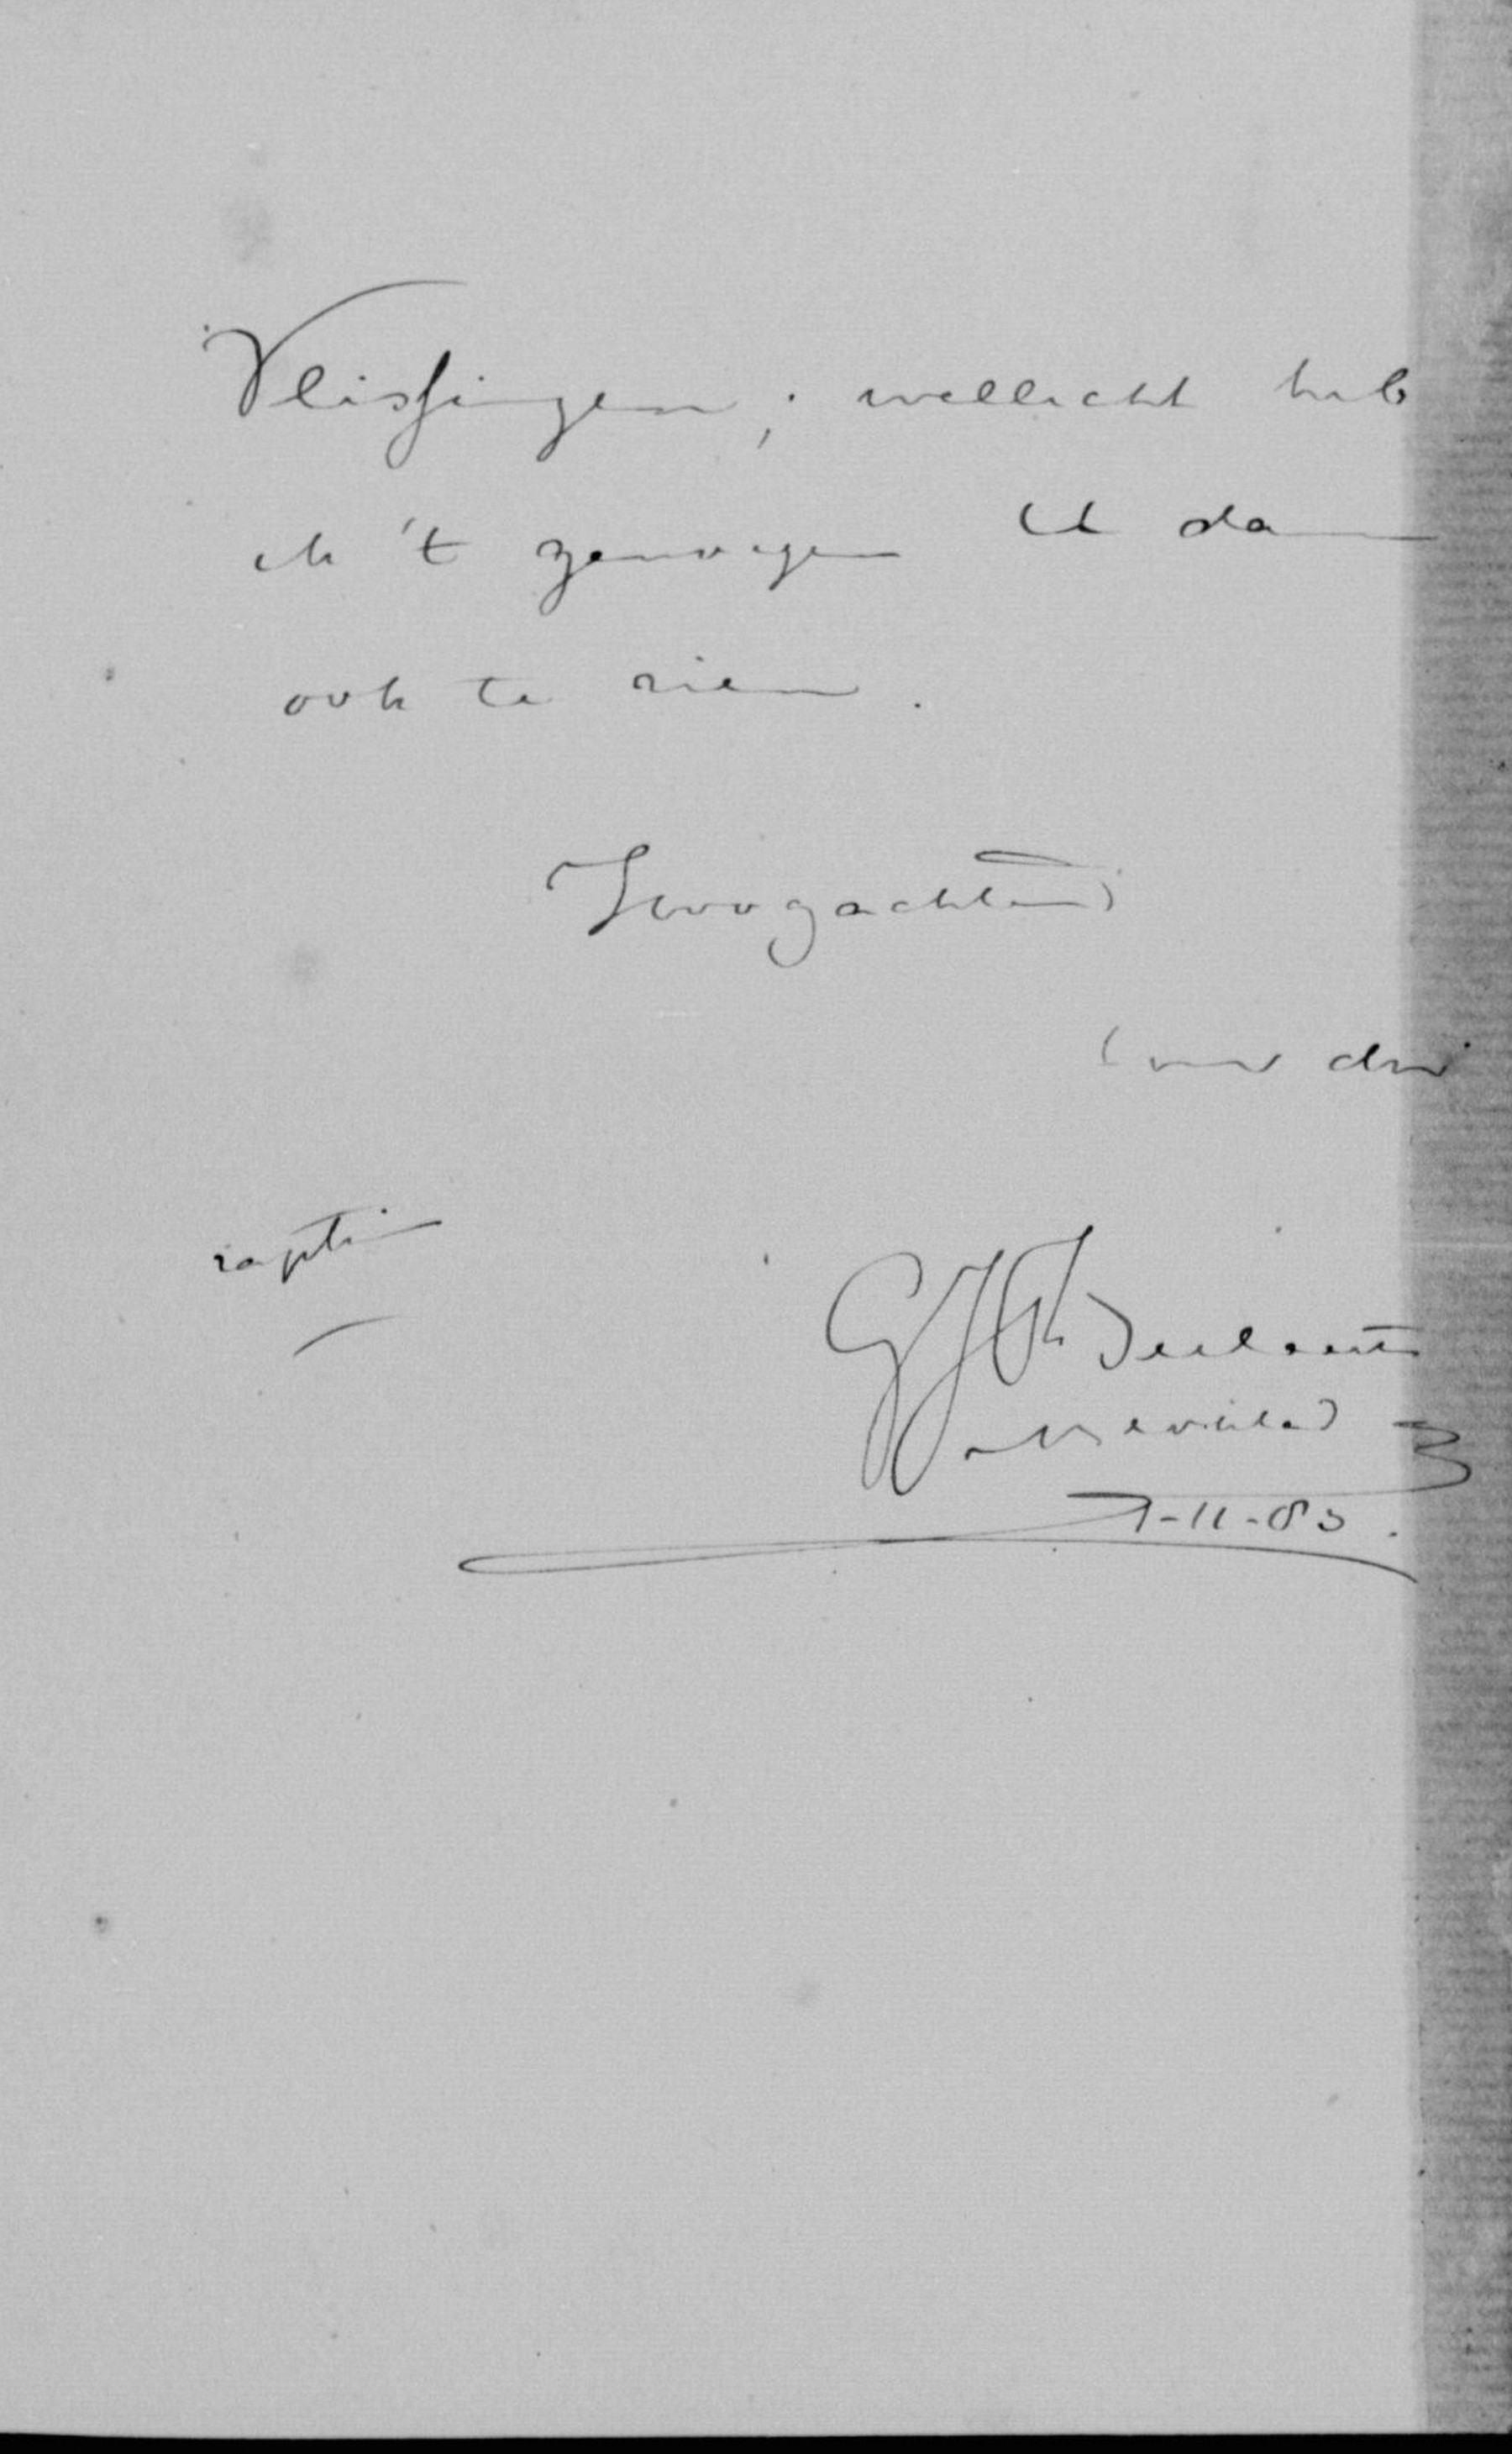 Vlissingen; wellicht heb
ik 't genoegen U dan
ook te zien.
Hoogachtend
Uw dw
raptim
GJF
7-11-83.